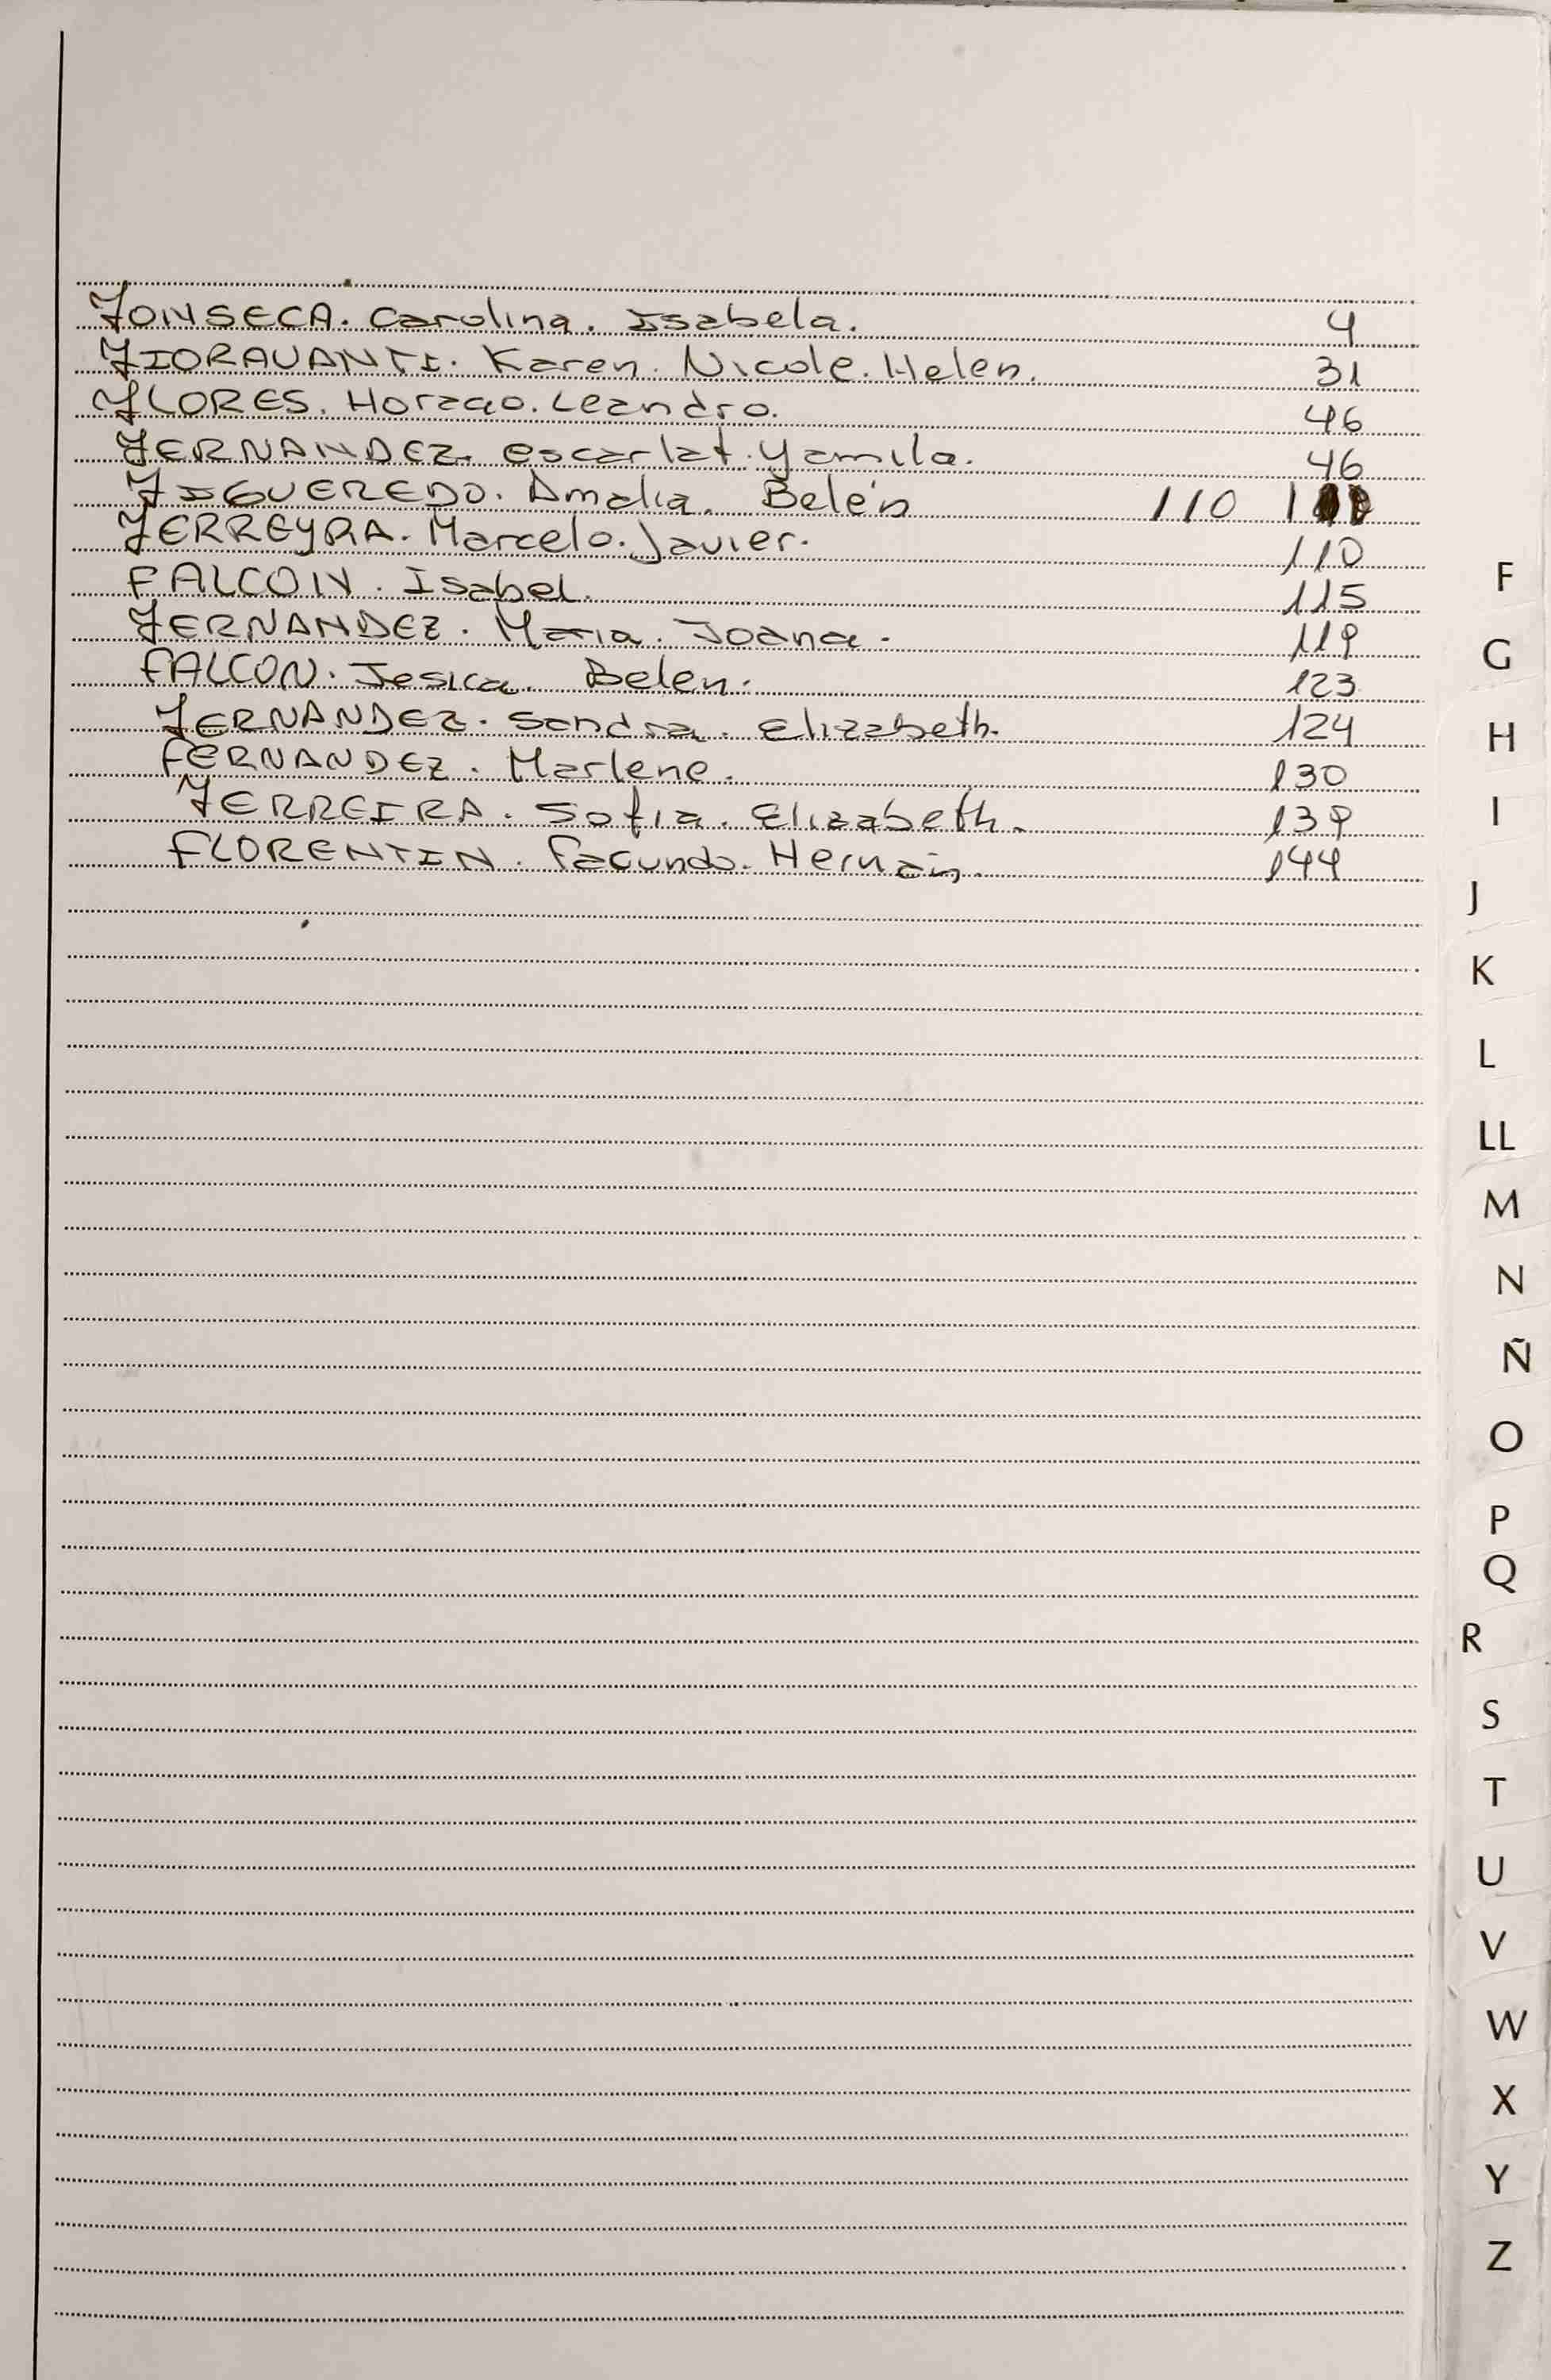 FONSECA. Carolina. Isabela. 4
FIORAVANTI. Karen. Nicole. Helen. 31
FLORES. Horacio. Leandro. 46
FERNANDEZ. escarlat. Yamila. 46
FIGUEREDO. Amalia. Belén 110 1
FERREYRA. Marcelo. Javier. 110
FALCON. Isabel. 115
FERNANDEZ. Maria. Joana. 119
FALCON. Jesica. Belen. 123
FERNANDEZ. Sandra. Elizabeth. 124
FERNANDEZ. Marlene. 130
FERREIRA. Sofia. Elizabeth. 139
FLORENTIN. Facundo. Hernán. 144
F
G
H
I
J
K
L
LL
M
N
Ñ
O
P
Q
R
S
T
U
V
W
X
Y
Z